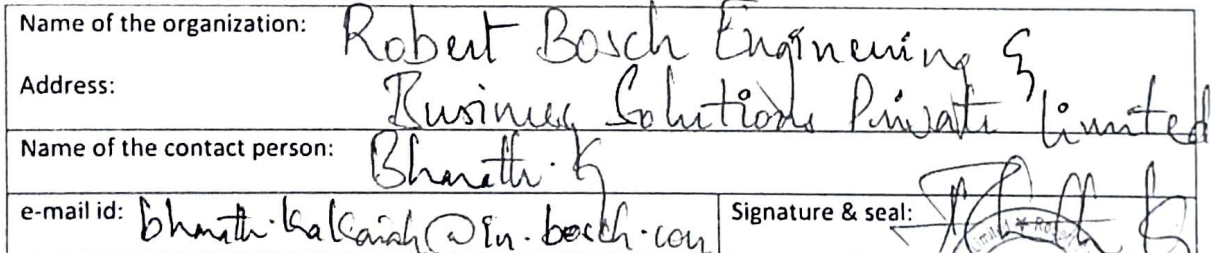 Name of the organization: Robert Bosch Engineering &
Address: Business Solutions Private Limited
Name of the contact person: Bharath. K
e-mail id: bharath.kalkaiah@in.bosch.com Signature & seal: